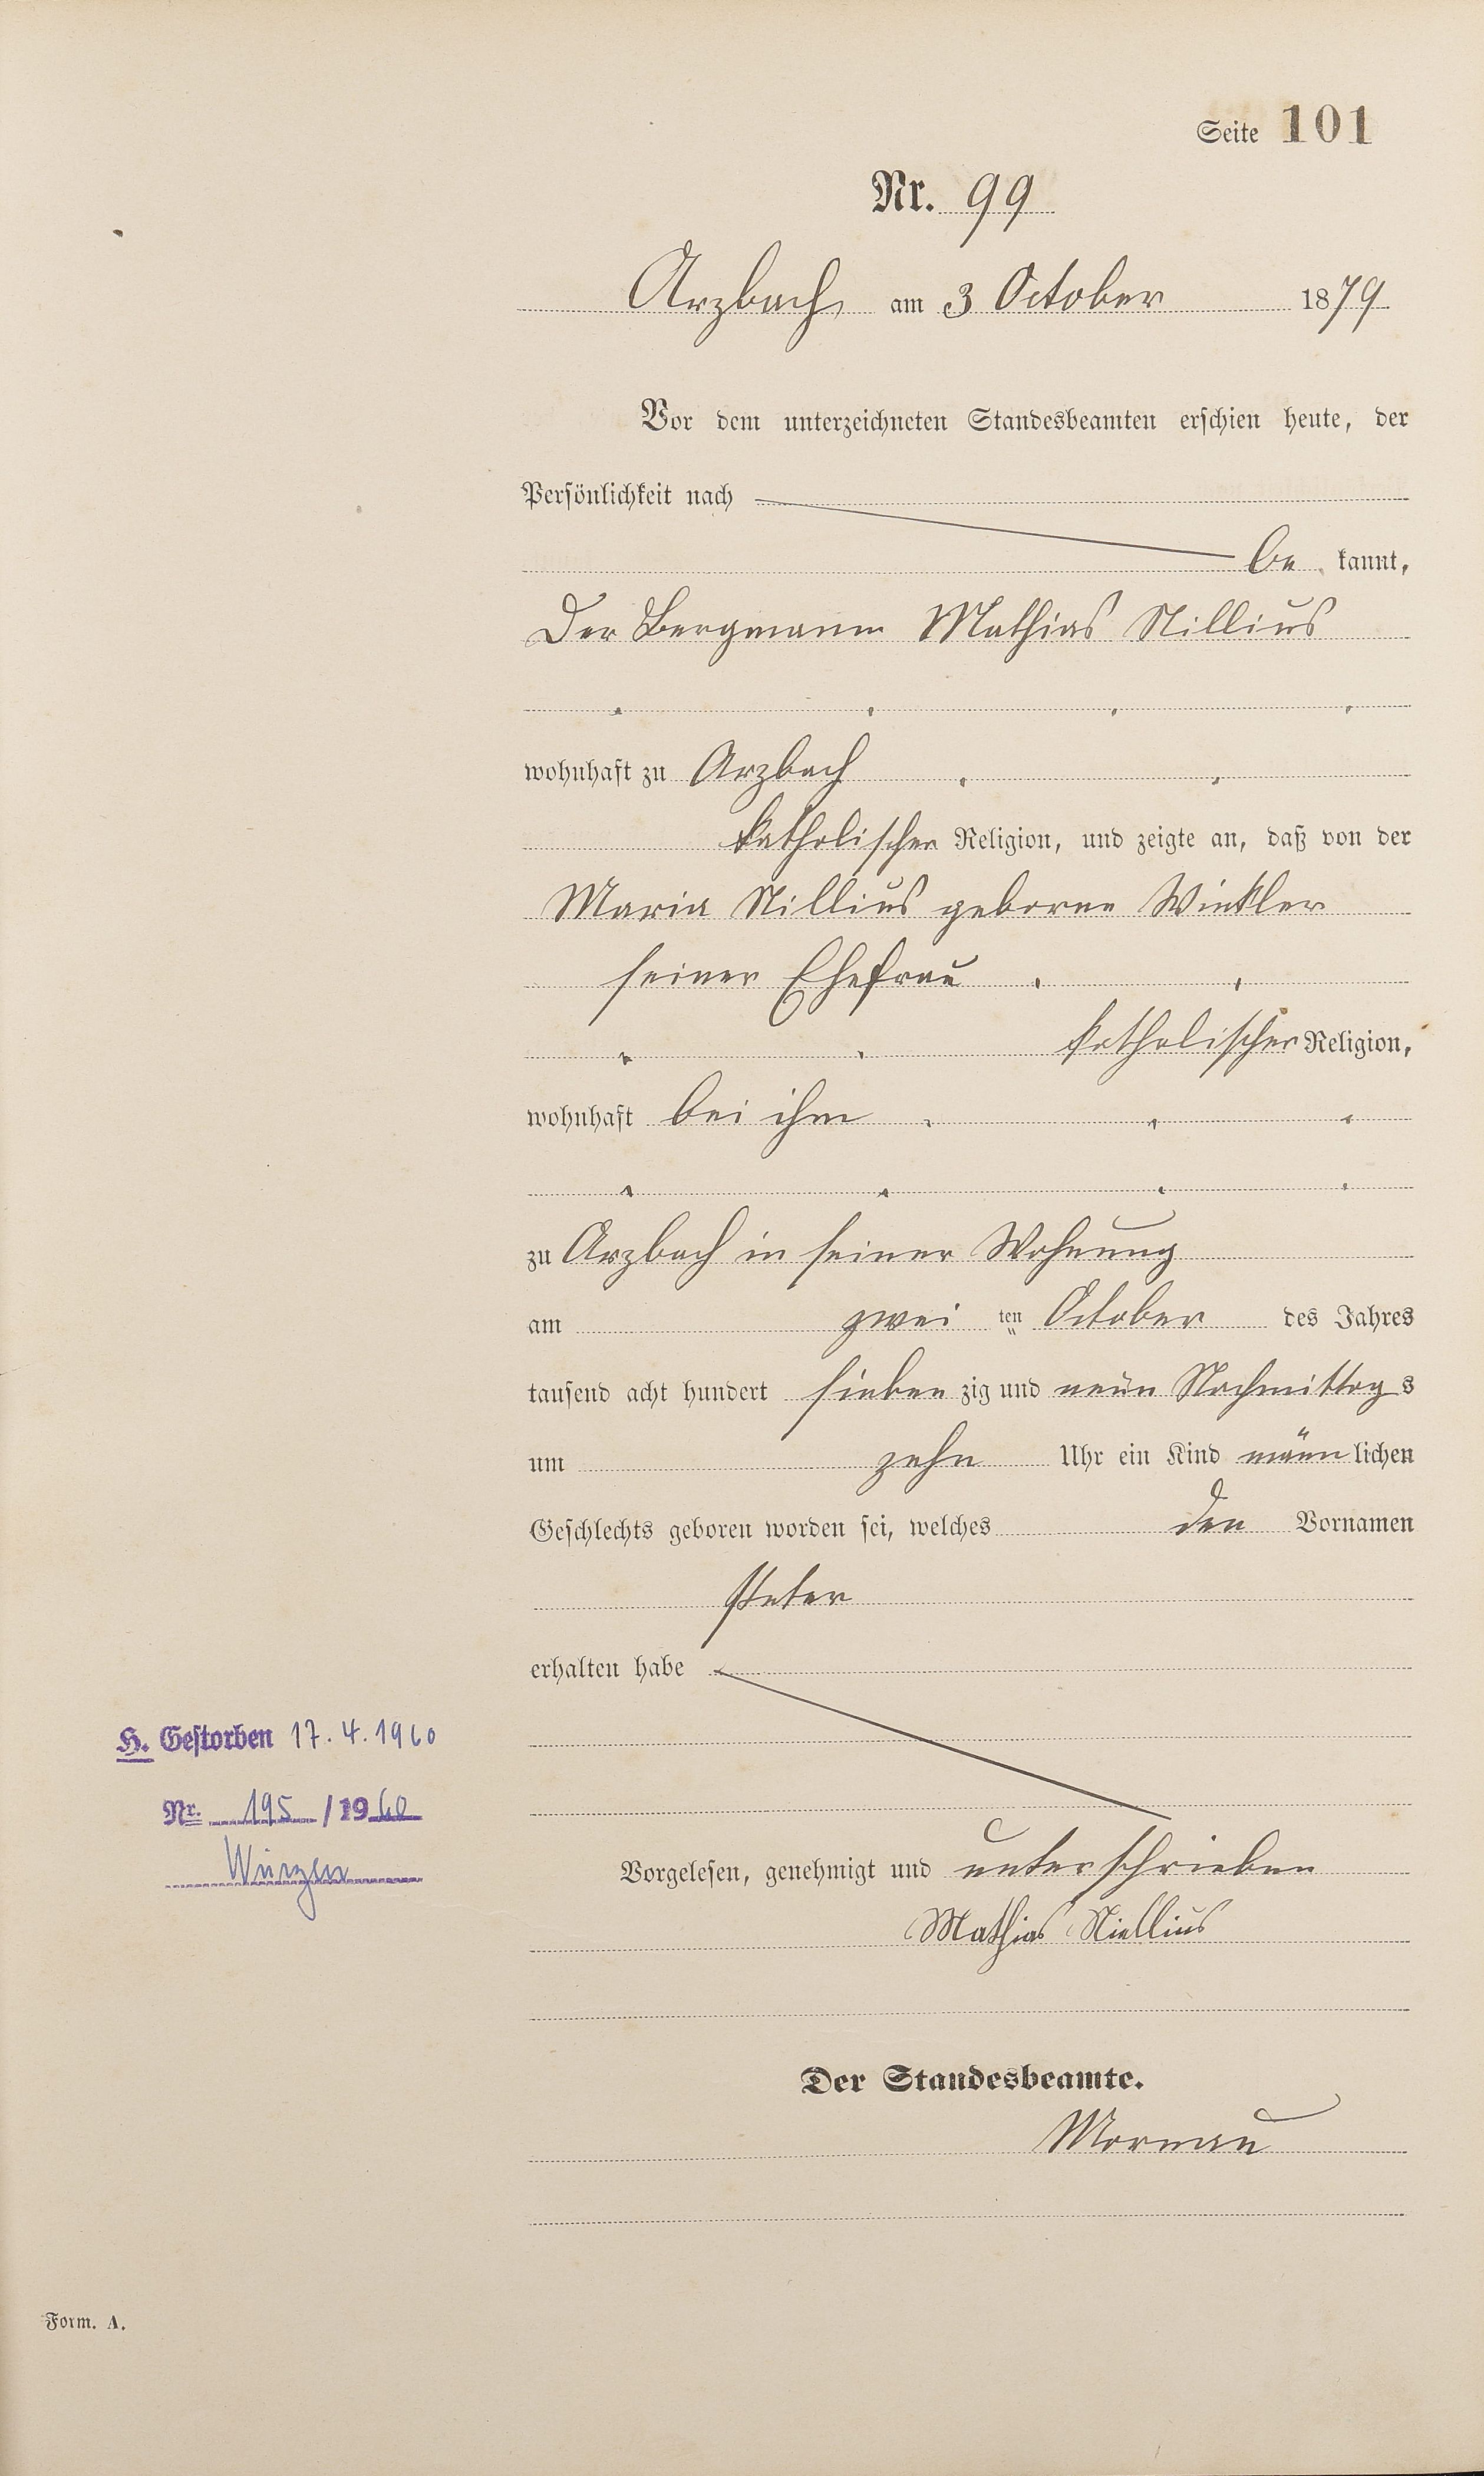 Seite 101
Nr. 99
Arzbach am 3 October 1879
Vor dem unterzeichneten Standesbeamten erschien heute, der
Persönlichkeit nach
be kannt,
Der Bergmann Mathias Nillius
wohnhaft zu Arzbach
katholischer Religion, und zeigte an, daß von der
Maria Nillius geborne Winkler
seiner Ehefrau
katholischer Religion,
wohnhaft bei ihm
zu Arzbach in seiner Wohnung
am zwei ten October des Jahres
tausend acht hundert sieben zig und neun Nachmittags
um zehn Uhr ein Kind männ lichen
Geschlechts geboren worden sei, welches den Vornamen
Peter
erhalten habe
H. Gestorben 17.4.1960
Nr. 195 / 1960
Vorgelesen, genehmigt und unterschrieben
Mathias Niellius
Der Standesbeamte.
Form. A.